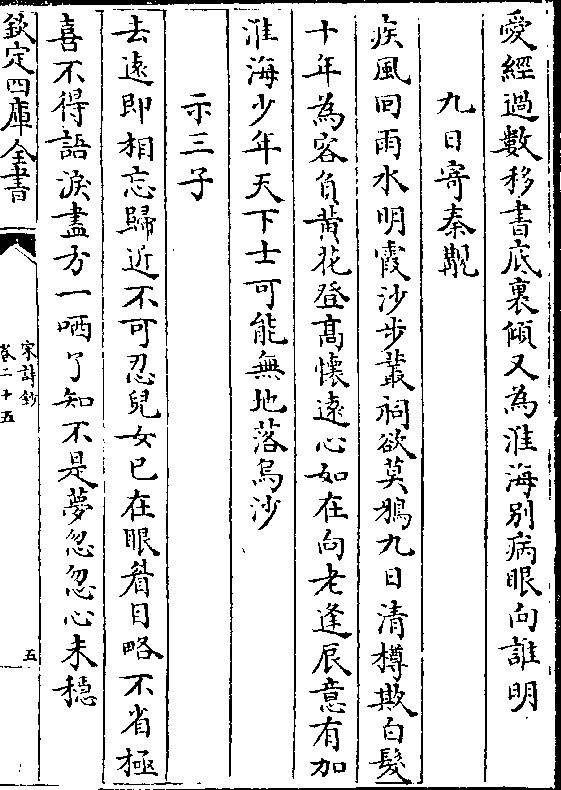 愛經過數移書底裏傾又為淮海别病眼向誰明
九日寄秦觀
疾風回雨水明霞沙步叢祠欲莫鴉九日清樽欺白髮
十年為客負黃花登高懷遠心如在向老逢辰意有加
淮海少年天下士可能無地落烏沙
示三子
去遠即相忘歸近不可忍兒女已在眼眉目略不省極
喜不得語淚盡方一哂了知不是夢忽忽心未穩
欽定四庫全書
宋詩鈔
卷二十五
五